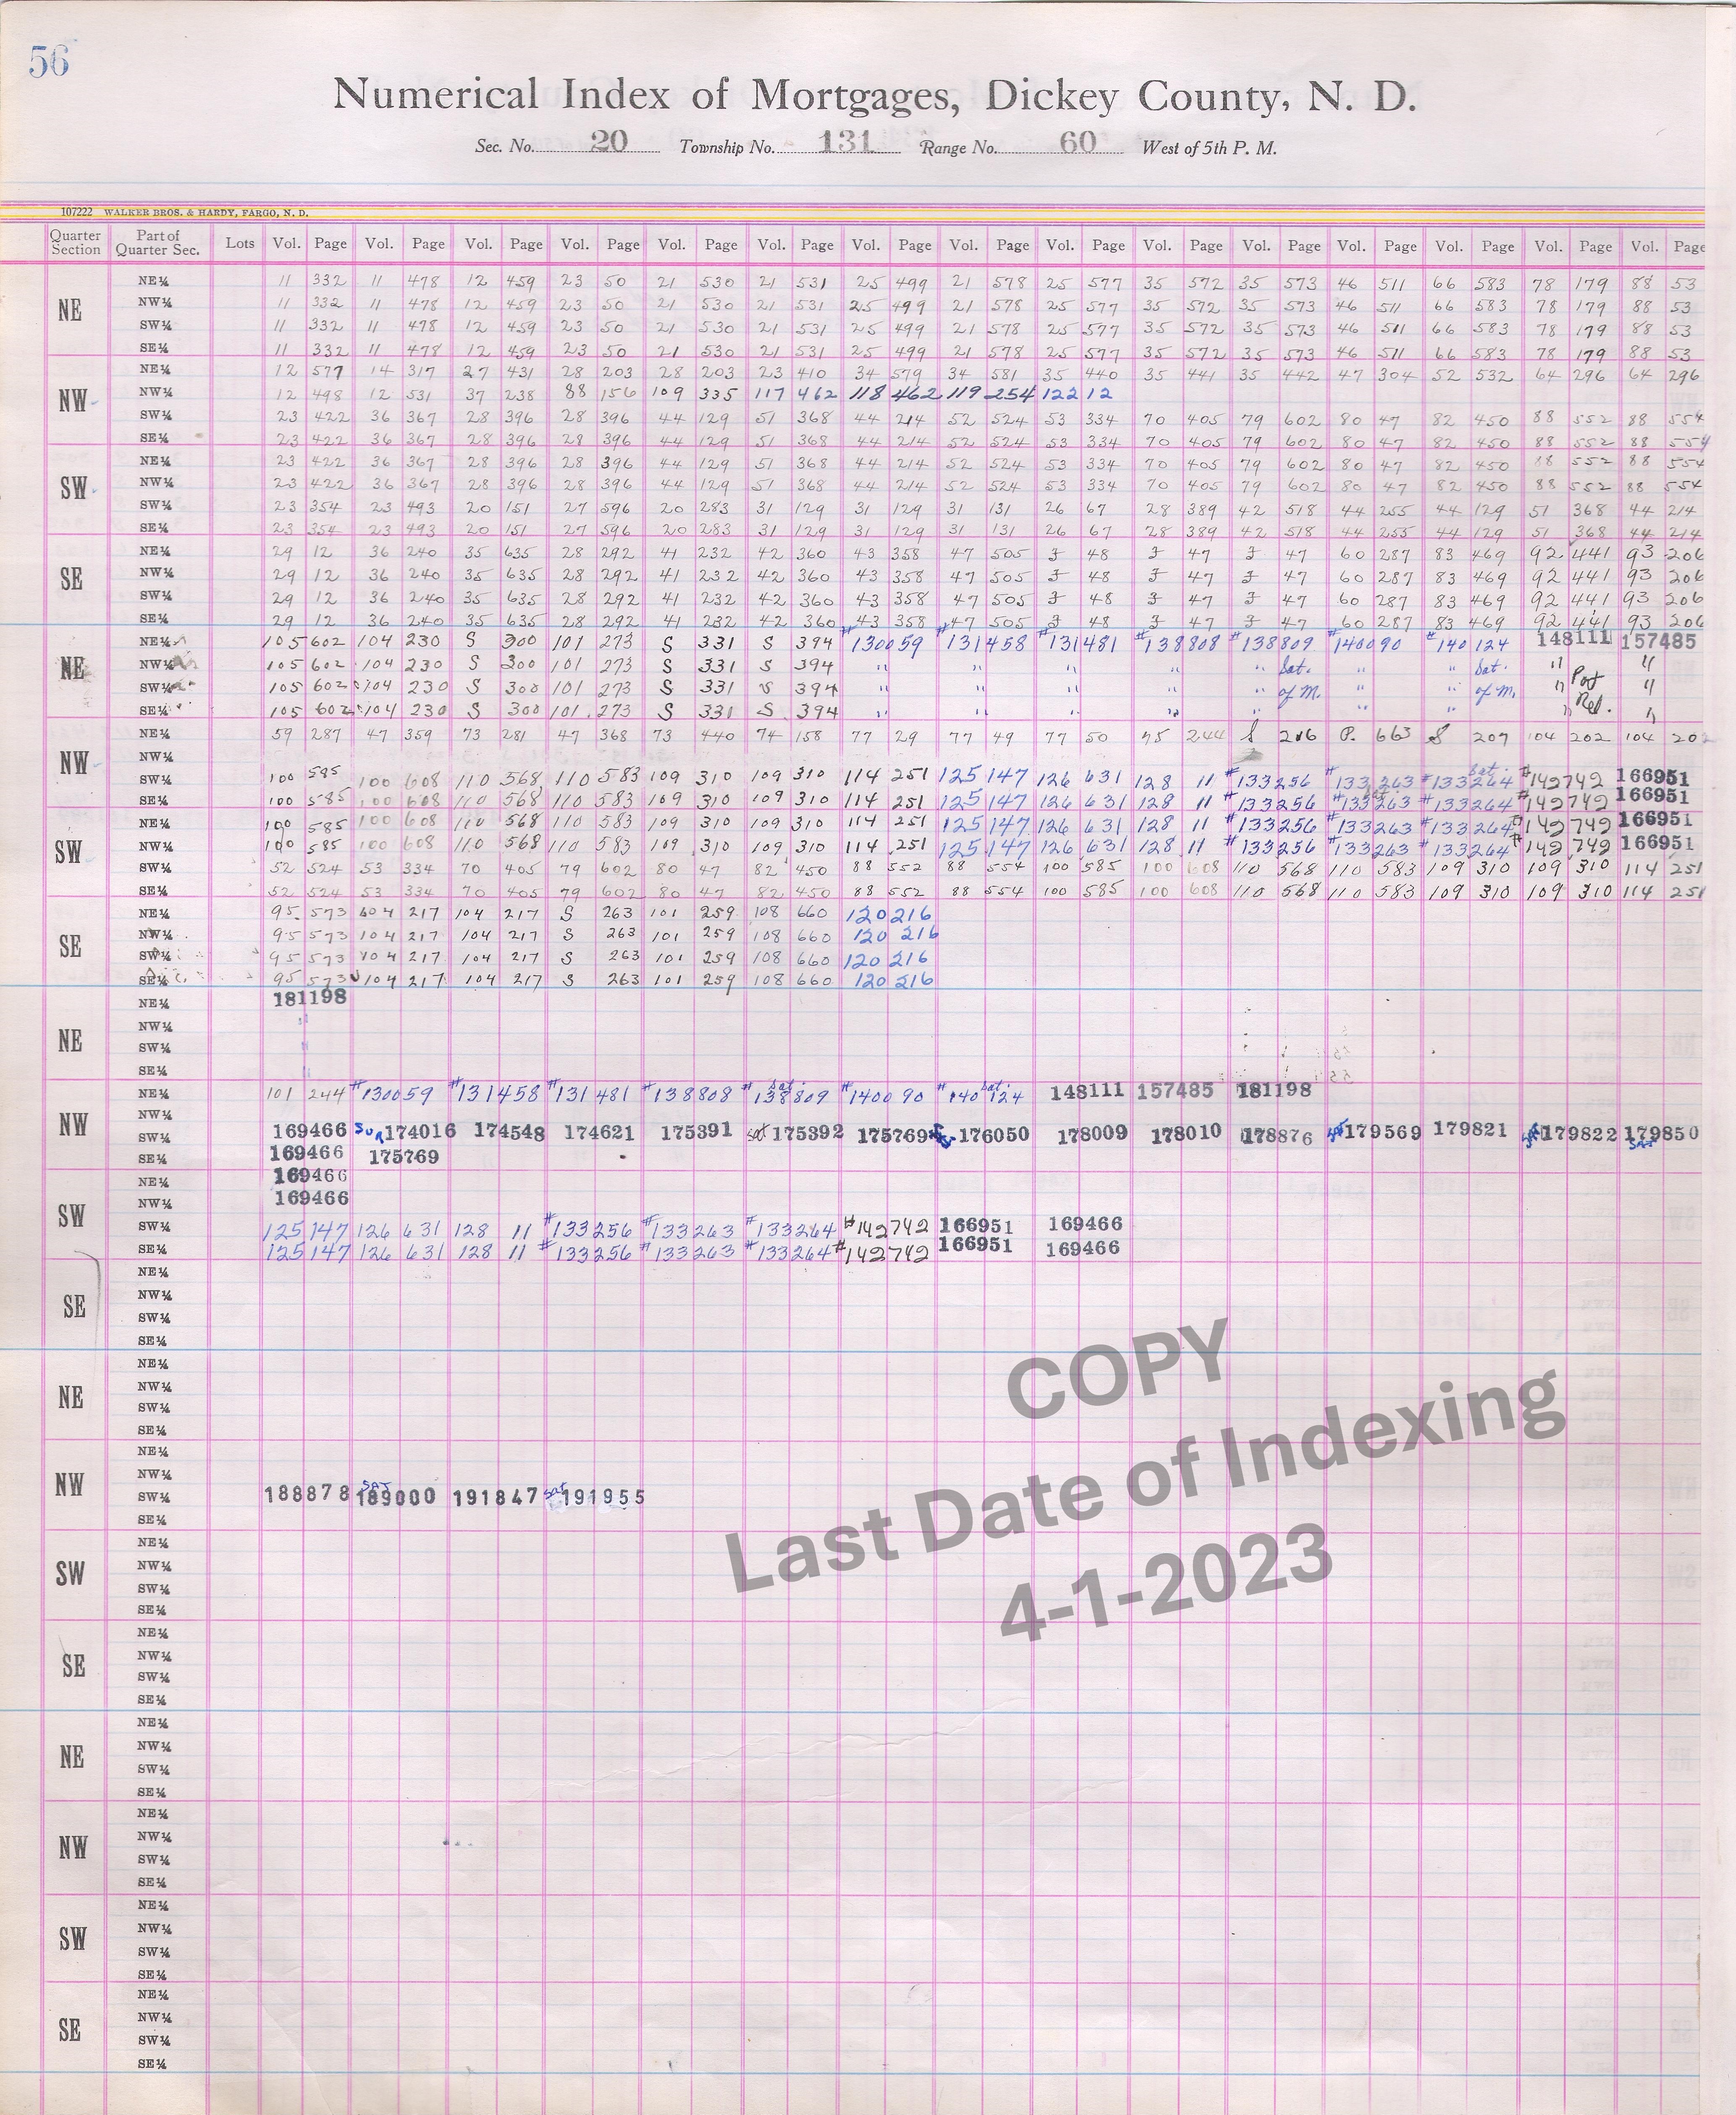 56
Numerical Index of Mortgages, Dickey County, N. D.
Sec. No. 20 Township No. 131 Range No. 60 West of 5th P. M.
107222 WALKER BROS. & HARDY, FARGO, N. D.
Quarter Section Part of Quarter Sec. Lots Vol. Page Vol. Page Vol. Page Vol. Page Vol. Page Vol. Page Vol. Page Vol. Page Vol. Page Vol. Page Vol. Page Vol. Page Vol. Page Vol. Page Vol. Page
NE
NE¼ 11 332 11 478 12 459 23 50 21 530 21 531 25 499 21 578 25 577 35 572 35 573 46 511 66 583 78 179 88 53
NW¼ 11 332 11 478 12 459 23 50 21 530 21 531 25 499 21 578 25 577 35 572 35 573 46 511 66 583 78 179 88 53
SW¼ 11 332 11 478 12 459 23 50 21 530 21 531 25 499 21 578 25 577 35 572 35 573 46 511 66 583 78 179 88 53
SE¼ 11 332 11 478 12 459 23 50 21 530 21 531 25 499 21 578 25 577 35 572 35 573 46 511 66 583 78 179 88 53
NW
NE¼ 12 577 14 317 27 431 28 203 28 203 23 410 34 579 34 581 35 440 35 441 35 442 47 304 52 532 64 296 64 296
NW¼ 12 498 12 531 37 238 88 156 109 335 117 462 118 462 119 254 122 12
SW¼ 23 422 36 367 28 396 28 396 44 129 51 368 44 214 52 524 53 334 70 405 79 602 80 47 82 450 88 552 88 554
SE¼ 23 422 36 367 28 396 28 396 44 129 51 368 44 214 52 524 53 334 70 405 79 602 80 47 82 450 88 552 88 554
SW
NE¼ 23 422 36 367 28 396 28 396 44 129 51 368 44 214 52 524 53 334 70 405 79 602 80 47 82 450 88 552 88 554
NW¼ 23 422 36 367 28 396 28 396 44 129 51 368 44 214 52 524 53 334 70 405 79 602 80 47 82 450 88 552 88 554
SW¼ 23 354 23 493 20 151 27 596 20 283 31 129 31 129 31 131 26 67 28 389 42 518 44 255 44 129 51 368 44 214
SE¼ 23 354 23 493 20 151 27 596 20 283 31 129 31 129 31 131 26 67 28 389 42 518 44 255 44 129 51 368 44 214
SE
NE¼ 29 12 36 240 35 635 28 292 41 232 42 360 43 358 47 505 48 47 47 60 287 83 469 92 441 93 206
NW¼ 29 12 36 240 35 635 28 292 41 232 42 360 43 358 47 505 48 47 47 60 287 83 469 92 441 93 206
SW¼ 29 12 36 240 35 635 28 292 41 232 42 360 43 358 47 505 48 47 47 60 287 83 469 92 441 93 206
SE¼ 29 12 36 240 35 635 28 292 41 232 42 360 43 358 47 505 48 47 47 60 287 83 469 92 441 93 206
NE
NE¼ 105 602 104 230 S 300 101 273 S 331 S 394 #130059 #131458 #131481 #138808 #138809 #140090 #140124 148111 157485
NW¼ 105 602 104 230 S 300 101 273 S 331 S 394 " " " " " Sat. " " Sat. " "
SW¼ 105 602 104 230 S 300 101 273 S 331 S 394 " " " " " of M. " " of M. " Par "
SE¼ 105 602 104 230 S 300 101 273 S 331 S 394 " " " " " " " " Rel. "
NW
NE¼ 59 287 47 359 73 281 47 368 73 440 74 158 77 29 77 49 77 50 75 244 S 206 P. 663 S 207 104 202 104 202
NW¼
SW¼ 100 585 100 608 110 568 110 583 109 310 109 310 114 251 125 147 126 631 128 11 #133256 #133263 #133264 Sat. #142742 166951
SE¼ 100 585 100 608 110 568 110 583 109 310 109 310 114 251 125 147 126 631 128 11 #133256 #133263 #133264 #142742 166951
SW
NE¼ 100 585 100 608 110 568 110 583 109 310 109 310 114 251 125 147 126 631 128 11 #133256 #133263 #133264 #142742 166951
NW¼ 100 585 100 608 110 568 110 583 109 310 109 310 114 251 125 147 126 631 128 11 #133256 #133263 #133264 #142742 166951
SW¼ 52 524 53 334 70 405 79 602 80 47 82 450 88 552 88 554 100 585 100 608 110 568 110 583 109 310 109 310 114 251
SE¼ 52 524 53 334 70 405 79 602 80 47 82 450 88 552 88 554 100 585 100 608 110 568 110 583 109 310 109 310 114 251
SE
NE¼ 95 573 104 217 104 217 S 263 101 259 108 660 120 216
NW¼ 95 573 104 217 104 217 S 263 101 259 108 660 120 216
SW¼ 95 573 104 217 104 217 S 263 101 259 108 660 120 216
SE¼ 95 573 104 217 104 217 S 263 101 259 108 660 120 216
NE
NE¼ 181198
NW¼ "
SW¼ "
SE¼
NW
NE¼ 101 244 #130059 #131458 #131481 #138808 #138809 Sat. #140090 #140124 Sat. 148111 157485 181198
NW¼
SW¼ 169466 SUR 174016 174548 174621 175391 sat 175392 175769 176050 178009 178010 178876 sat 179569 179821 sat 179822 179850 SAT
SE¼ 169466 175769
SW
NE¼ 169466
NW¼ 169466
SW¼ 125 147 126 631 128 11 #133256 #133263 #133264 #142742 166951 169466
SE¼ 125 147 126 631 128 11 #133256 #133263 #133264 #142742 166951 169466
SE
NE¼
NW¼
SW¼
SE¼
NE
NE¼
NW¼
SW¼
SE¼
NW
NE¼
NW¼
SW¼ 188878 SAT 189000 191847 sat 191955
SE¼
SW
NE¼
NW¼
SW¼
SE¼
SE
NE¼
NW¼
SW¼
SE¼
NE
NE¼
NW¼
SW¼
SE¼
NW
NE¼
NW¼
SW¼
SE¼
SW
NE¼
NW¼
SW¼
SE¼
SE
NE¼
NW¼
SW¼
SE¼
COPY
Last Date of Indexing
4-1-2023